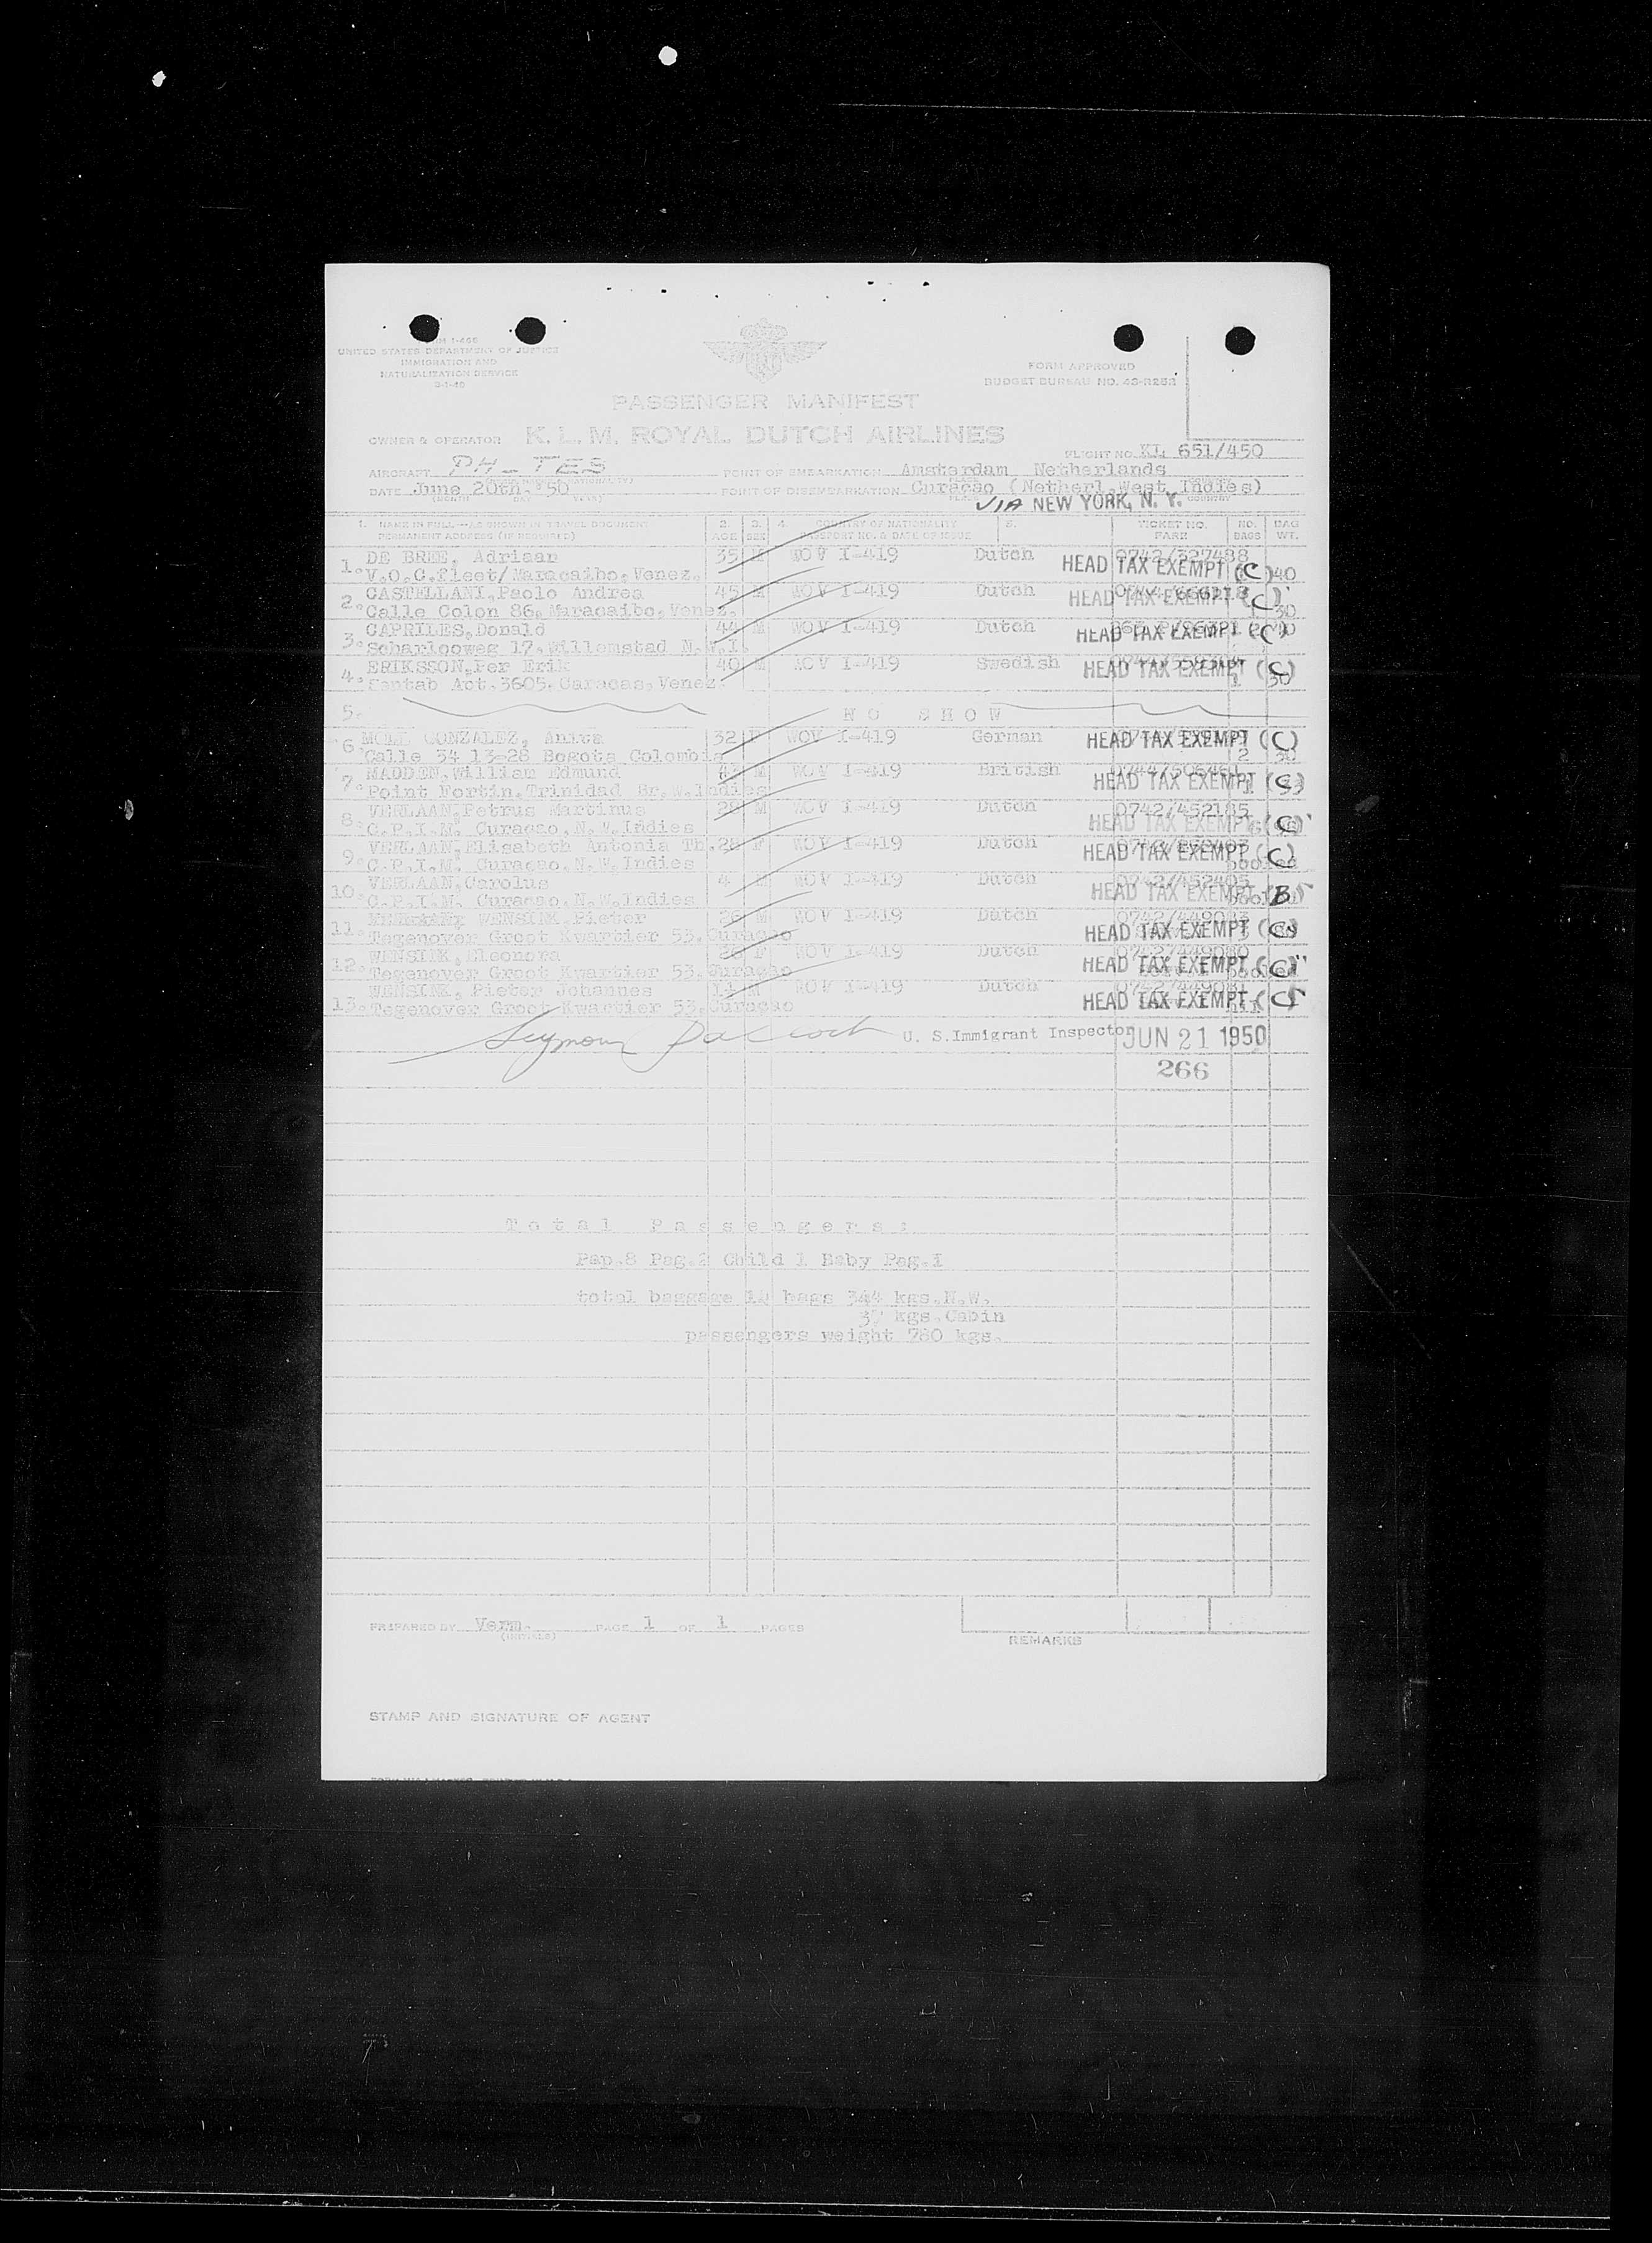 FORM I-466
UNITED STATES DEPARTMENT OF JUSTICE
IMMIGRATION AND
NATURALIZATION SERVICE
FORM APPROVED
BUDGET BUREAU NO. 43-R252
PASSENGER MANIFEST
OWNER & OPERATOR K. L. M. ROYAL DUTCH AIRLINES
FLIGHT NO. KL 651/450
AIRCRAFT PH - TES POINT OF EMBARKATION Amsterdam Netherlands
DATE June 20th, '50 POINT OF DISEMBARKATION Curaçao (Netherl.West Indies)
VIA NEW YORK, N. Y.
1. NAME IN FULL—AS SHOWN IN TRAVEL DOCUMENT 2. 3. 4. COUNTRY OF NATIONALITY 5. TICKET NO. NO. BAG
PERMANENT ADDRESS (IF REQUIRED) AGE SEX PASSPORT NO. & DATE OF ISSUE FARE BAGS WT.
1. DE BREE, Adriaan 35 M WOV I-419 Dutch 0742/327488
V.O.C.fleet/Maracaibo, Venez. HEAD TAX EXEMPT (C) 40
2. CASTELLANI, Paolo Andrea 45 M WOV I-419 Dutch
Calle Colon 86, Maracaibo, Venez. HEAD TAX EXEMPT (C) 30
3. CAPRILES, Donald 44 M WOV I-419 Dutch
Scharlooweg 17, Willemstad N.W.I. HEAD TAX EXEMPT (C)
4. ERIKSSON, Per Erik 40 M WOV I-419 Swedish
Sentab Apt. 3605, Caracas, Venez. HEAD TAX EXEMPT (C) 1 30
5. NO SHOW
6. GONZALEZ, Anita 32 F WOV I-419 German
Calle 34 13-28 Bogota Colombia HEAD TAX EXEMPT (C) 2 30
7. MADDEN, William Edmund 43 M WOV I-419 British
Point Fortin, Trinidad Br. W. Indies HEAD TAX EXEMPT (C)
8. VERLAAN, Petrus Martinus 28 M WOV I-419 Dutch 0742/452185
C.P.I.M. Curaçao, N. W. Indies HEAD TAX EXEMPT (C)
9. VERLAAN, Elisabeth Antonia Th. 28 F WOV I-419 Dutch
C.P.I.M. Curaçao, N. W. Indies HEAD TAX EXEMPT (C) pooled
10. VERLAAN, Carolus 4 M WOV I-419 Dutch 0742/452405
C.P.I.M. Curaçao, N. W. Indies HEAD TAX EXEMPT (B) pooled
11. WENSINK Pieter 36 M WOV I-419 Dutch 0742/449083
Tegenover Groot Kwartier 53, Curaçao HEAD TAX EXEMPT (C)
12. WENSINK, Eleonora 36 F WOV I-419 Dutch 0742/449080
Tegenover Groot Kwartier 53, Curaçao HEAD TAX EXEMPT (C)
13. WENSINK, Pieter Johannes 11 M WOV I-419 Dutch 0742/449081
Tegenover Groot Kwartier 53, Curaçao HEAD TAX EXEMPT (C)
Seymour U. S. Immigrant Inspector JUN 21 1950
266
Total Passengers:
Pap.8 Pag.2 Child 1 Baby Pag.1
total baggage 12 bags 344 kgs.N.W.
37 kgs.Cabin
passengers weight 780 kgs.
PREPARED BY Verm. PAGE 1 OF 1 PAGES
(INITIALS)
REMARKS
STAMP AND SIGNATURE OF AGENT